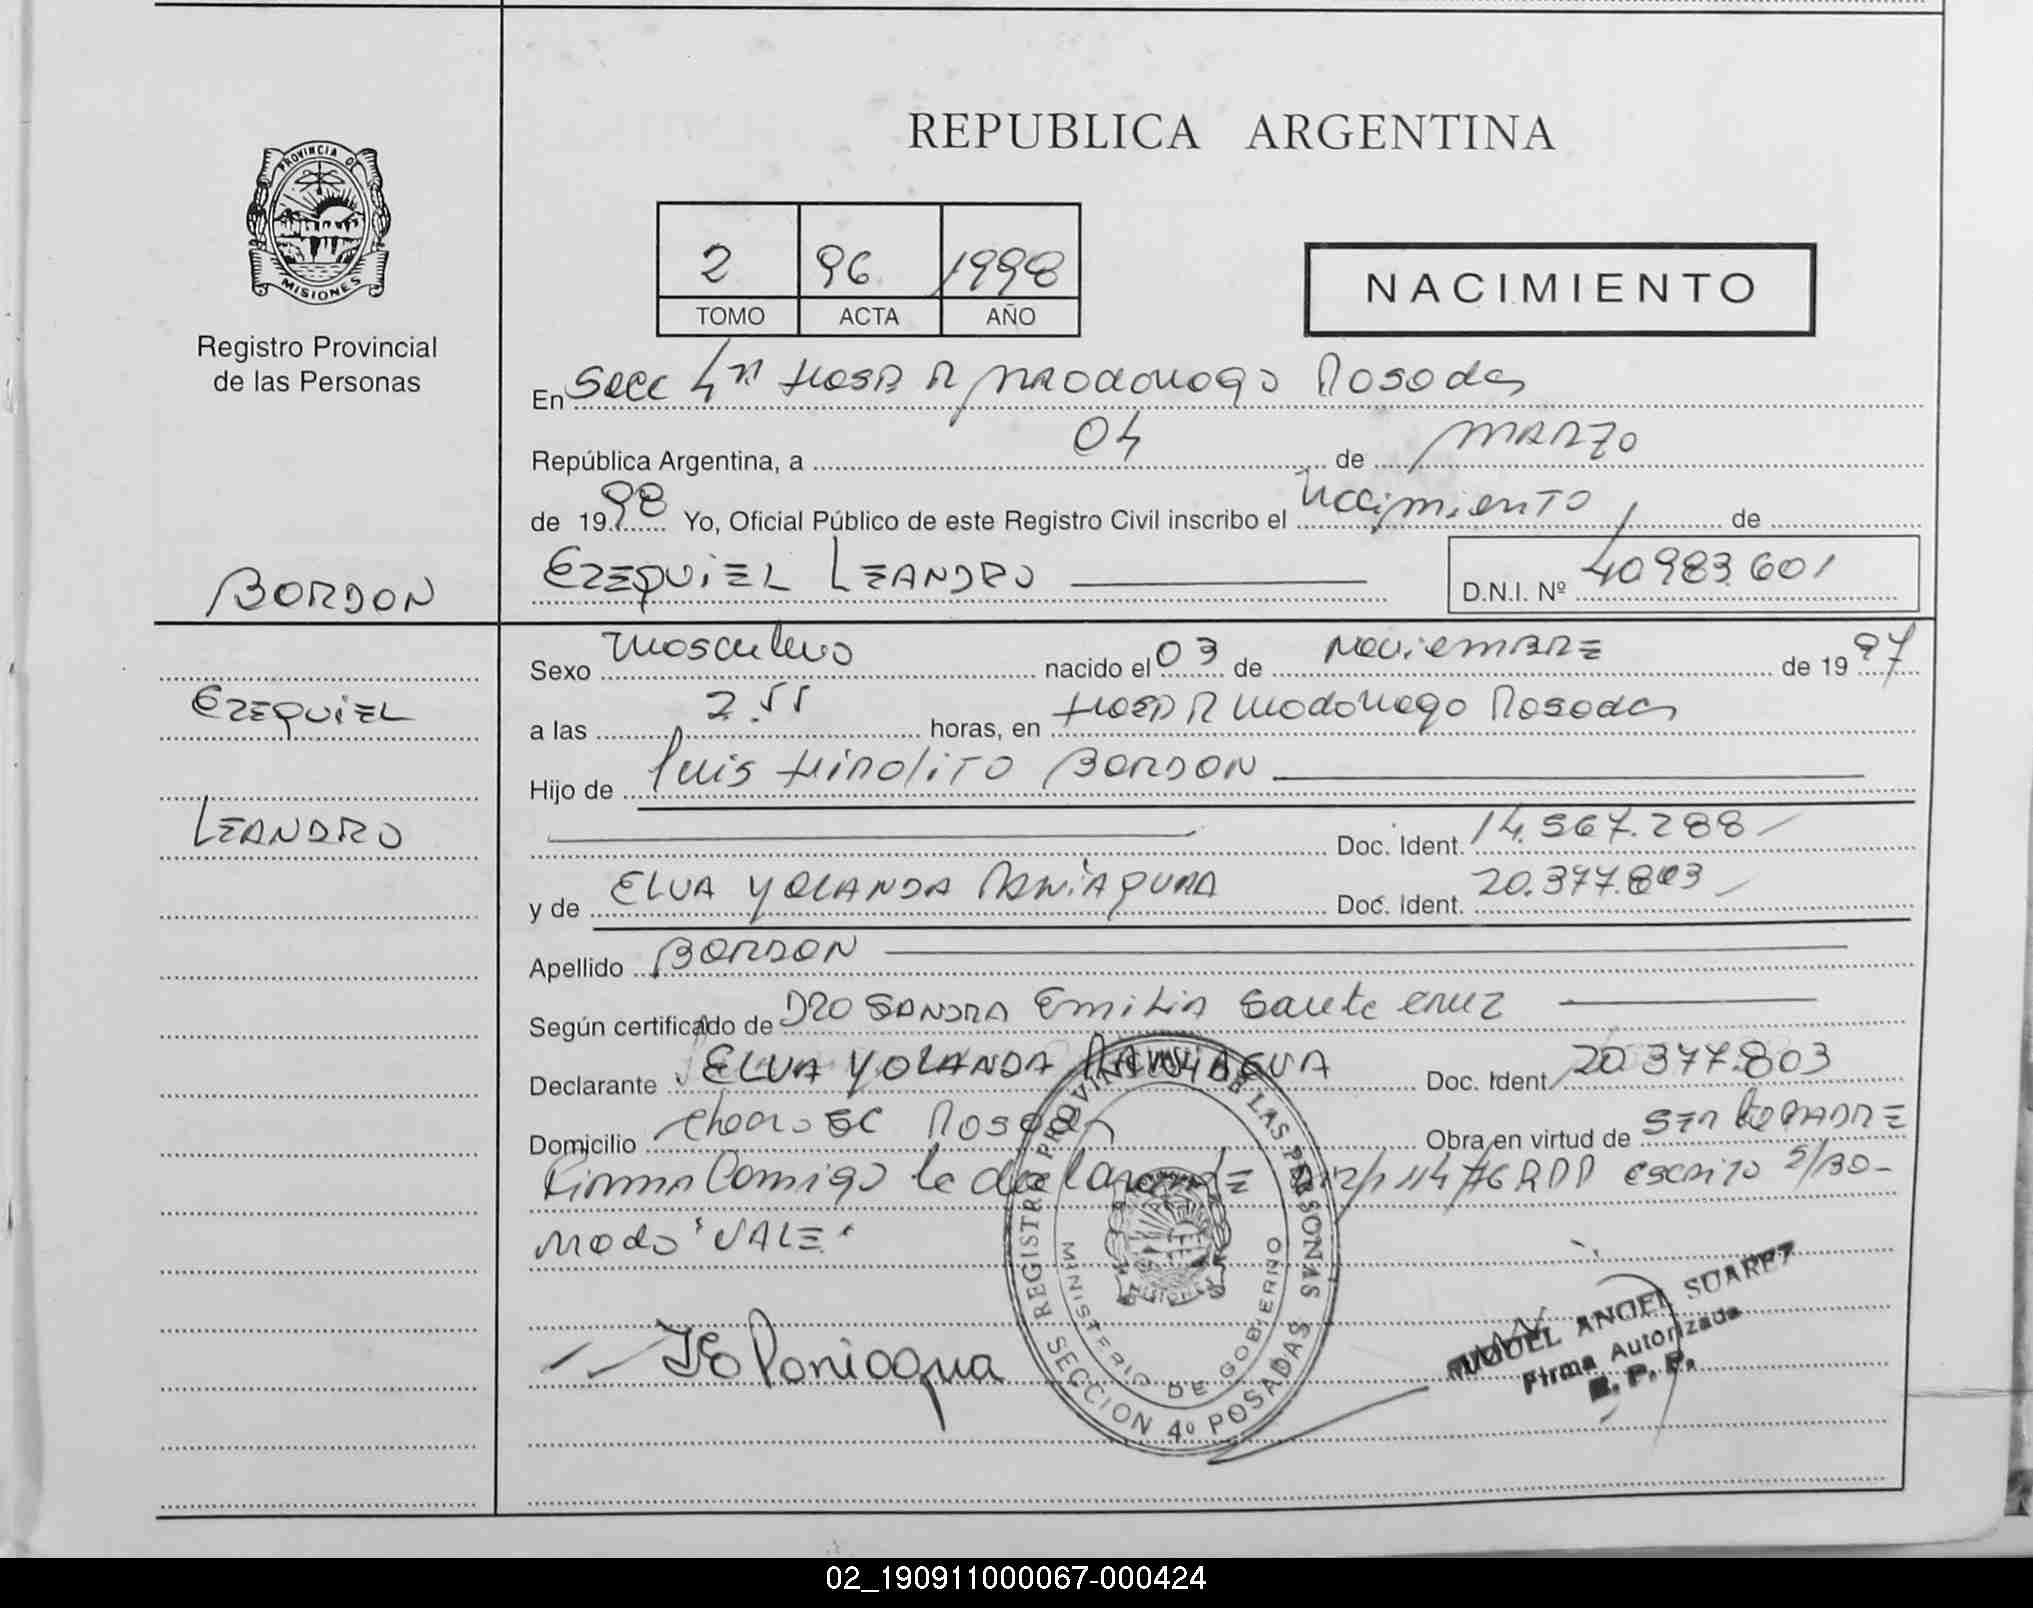 REPUBLICA ARGENTINA
PROVINCIA DE
MISIONES
Registro Provincial
de las Personas
2 96 1998
TOMO ACTA AÑO
NACIMIENTO
En Secc 4ª Hosp R Madariaga Posadas
República Argentina, a 04 de MARZO
de 1998 Yo, Oficial Público de este Registro Civil inscribo el Nacimiento de
EZEQUIEL LEANDRO D.N.I. Nº 40983601
BORDON
EZEQUIEL
LEANDRO
Sexo Masculino nacido el 03 de NoviemBRE de 1997
a las 2.55 horas, en Hosp R Madariaga Posadas
Hijo de Luis HipoliTO BORDON
Doc. Ident. 14.567.288
y de ELVA YOLANDA PANIAGUA Doc. Ident. 20.377.803
Apellido BORDON
Según certificado de DRA SANDRA EmiLia Santa Cruz
Declarante ELVA YOLANDA PANIAGUA Doc. Ident 20.377.803
Domicilio Posadas Obra en virtud de SER LA MADRE
Firma Comigo la declarante escrito S/BO-
MADO "VALE"
Paniagua
REGISTRO PROVINCIAL DE LAS PERSONAS
MINISTERIO DE GOBIERNO
SECCION 4º POSADAS
MIGUEL ANGEL SUAREZ
Firma Autorizada
R. P. P.
02_190911000067-000424